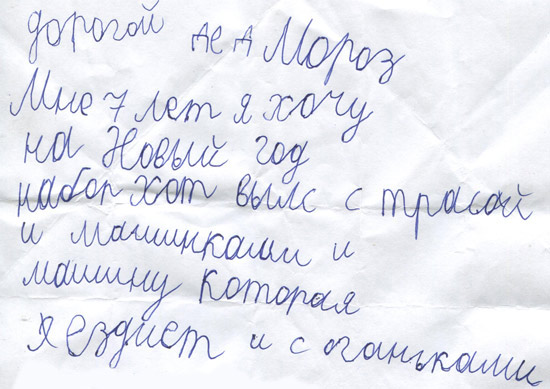 дорогой дед Мороз
Мне 7 лет я хочу
на Новый год
набор хот вылс с трасой
и машинками и
машину которая
хездиет и с оганьками